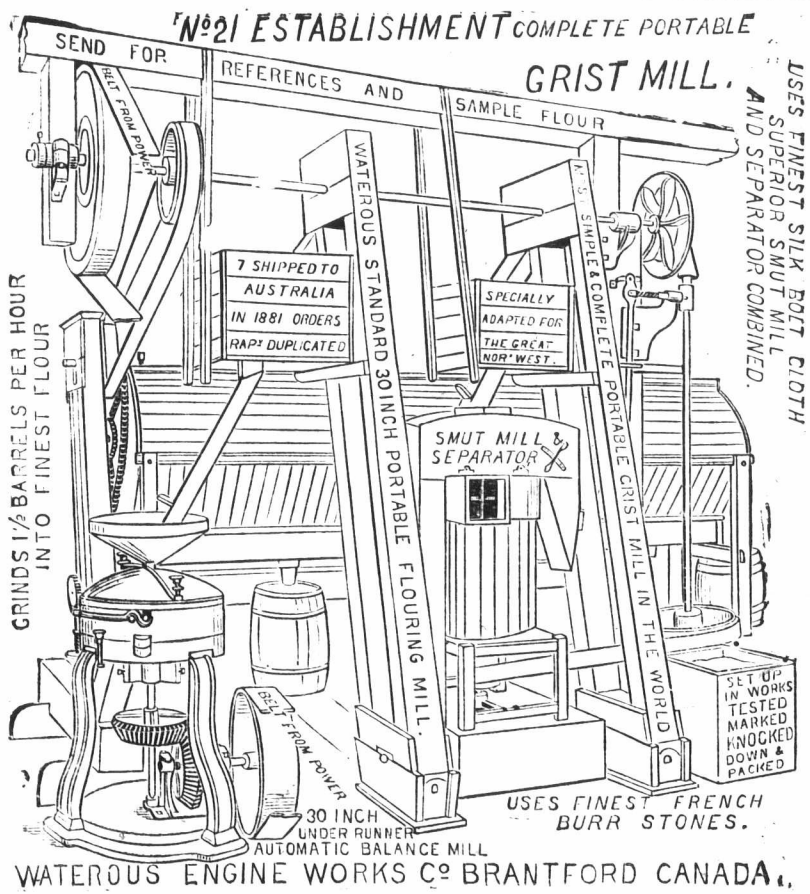 No 21 ESTABLISHMENT COMPLETE PORTABLE
GRIST MILL.
SEND FOR REFERENCES AND SAMPLE FLOUR
USES FINEST SILK BOLT CLOTH
SUPERIOR SMUT MILL
AND SEPARATOR COMBINED.
BELT FROM POWER
GRINDS 1 1/2 BARRELS PER HOUR
INTO FINEST FLOUR
7 SHIPPED TO
AUSTRALIA
IN 1881 ORDERS
RAPY DUPLICATED
WATEROUS STANDARD 30 INCH PORTABLE FLOURING MILL.
SPECIALLY
ADAPTED FOR
THE GREAT
NOR' WEST.
SIMPLE & COMPLETE PORTABLE GRIST MILL IN THE WORLD
SMUT MILL &
SEPARATOR
SET UP
IN WORKS
TESTED
MARKED
KNOCKED
DOWN &
PACKED
BELT FROM POWER
30 INCH
UNDER RUNNER
AUTOMATIC BALANCE MILL
USES FINEST FRENCH
BURR STONES.
WATEROUS ENGINE WORKS Co BRANTFORD CANADA.